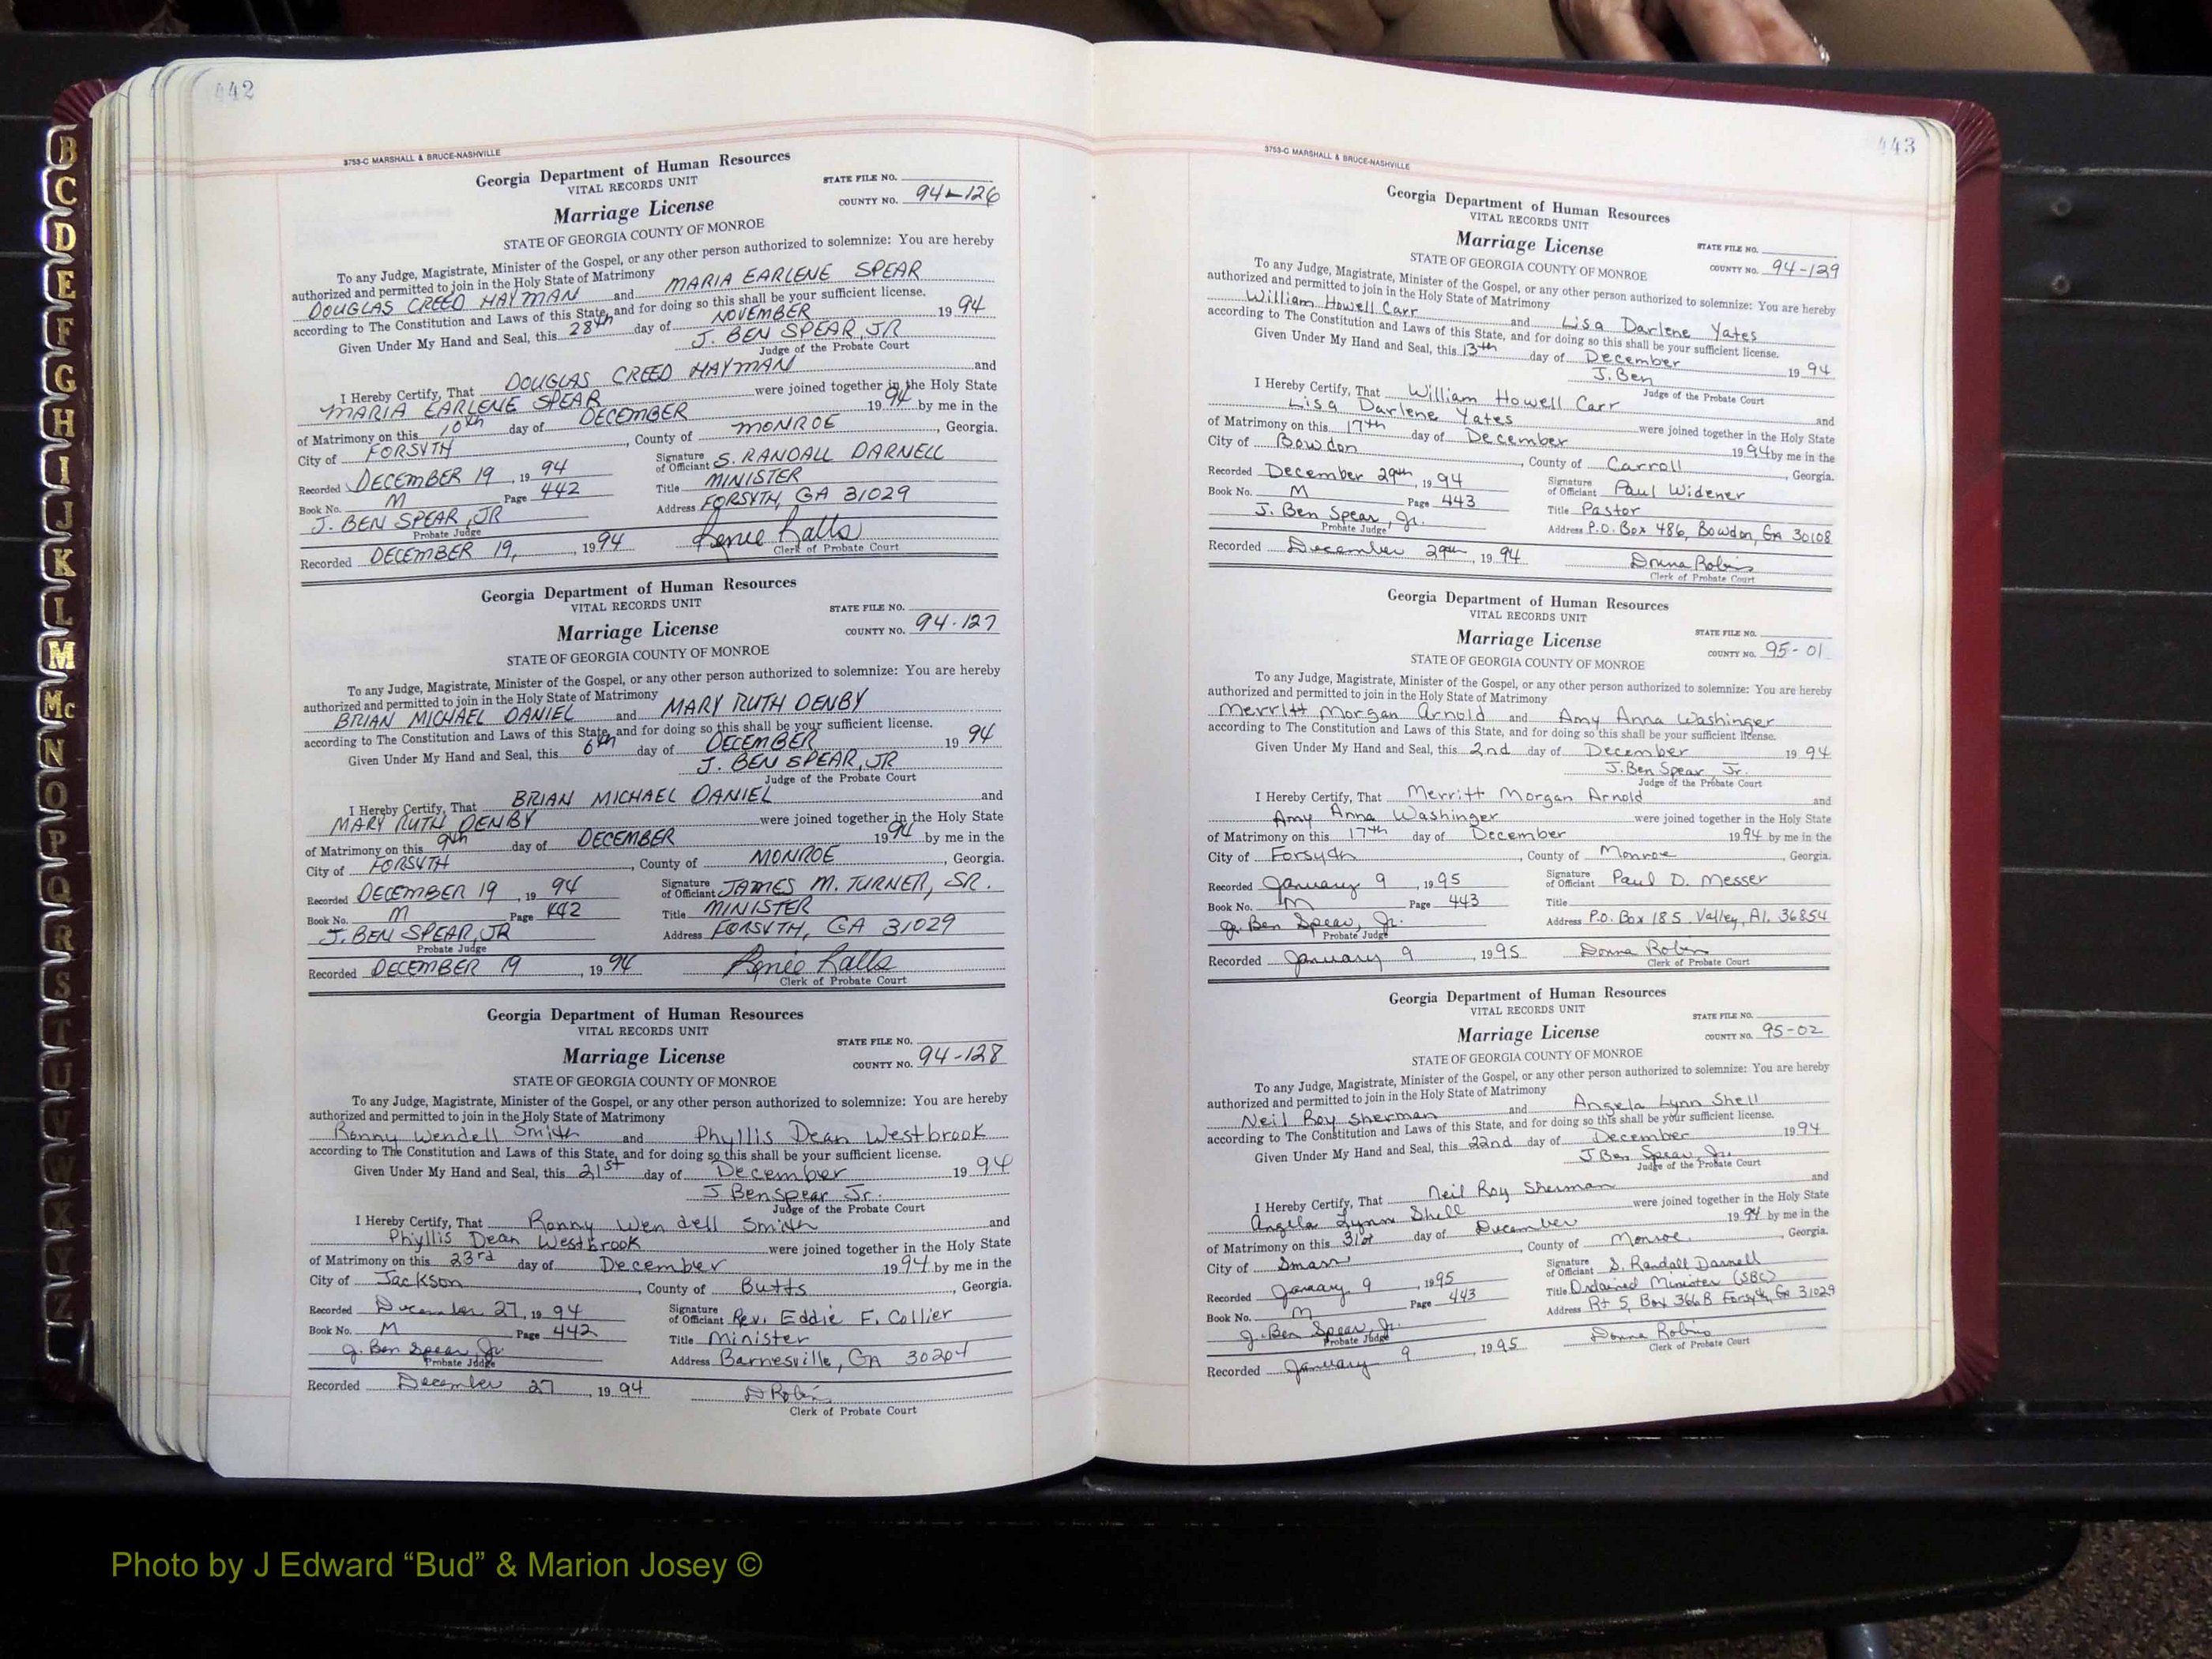 B
C
D
E
F
G
H
I
J
K
L
M
Mc
N
O
P
Q
R
S
T
U
V
W
X
Y
Z
442
3753-C MARSHALL & BRUCE-NASHVILLE
Georgia Department of Human Resources
VITAL RECORDS UNIT
STATE FILE NO.
Marriage License
COUNTY NO. 94-126
STATE OF GEORGIA COUNTY OF MONROE
To any Judge, Magistrate, Minister of the Gospel, or any other person authorized to solemnize: You are hereby
authorized and permitted to join in the Holy State of Matrimony
DOUGLAS CREED HAYMAN and MARIA EARLENE SPEAR
according to The Constitution and Laws of this State, and for doing so this shall be your sufficient license.
Given Under My Hand and Seal, this 28th day of NOVEMBER 1994
J. BEN SPEAR, JR
Judge of the Probate Court
I Hereby Certify, That DOUGLAS CREED HAYMAN and
MARIA EARLENE SPEAR were joined together in the Holy State
of Matrimony on this 10th day of DECEMBER 1994 by me in the
City of FORSYTH, County of MONROE, Georgia.
Recorded DECEMBER 19, 1994 Signature of Officiant S. RANDALL DARNELL
Book No. M Page 442 Title MINISTER
J. BEN SPEAR, JR Address FORSYTH, GA 31029
Probate Judge
Recorded DECEMBER 19, 1994 Renee Ralls
Clerk of Probate Court
Georgia Department of Human Resources
VITAL RECORDS UNIT
STATE FILE NO.
Marriage License
COUNTY NO. 94-127
STATE OF GEORGIA COUNTY OF MONROE
To any Judge, Magistrate, Minister of the Gospel, or any other person authorized to solemnize: You are hereby
authorized and permitted to join in the Holy State of Matrimony
BRIAN MICHAEL DANIEL and MARY RUTH DENBY
according to The Constitution and Laws of this State, and for doing so this shall be your sufficient license.
Given Under My Hand and Seal, this 6th day of DECEMBER 1994
J. BEN SPEAR, JR
Judge of the Probate Court
I Hereby Certify, That BRIAN MICHAEL DANIEL and
MARY RUTH DENBY were joined together in the Holy State
of Matrimony on this 9th day of DECEMBER 1994 by me in the
City of FORSYTH, County of MONROE, Georgia.
Recorded DECEMBER 19, 1994 Signature of Officiant JAMES M. TURNER, SR.
Book No. M Page 442 Title MINISTER
J. BEN SPEAR, JR Address FORSYTH, GA 31029
Probate Judge
Recorded DECEMBER 19, 1994 Renee Ralls
Clerk of Probate Court
Georgia Department of Human Resources
VITAL RECORDS UNIT
STATE FILE NO.
Marriage License
COUNTY NO. 94-128
STATE OF GEORGIA COUNTY OF MONROE
To any Judge, Magistrate, Minister of the Gospel, or any other person authorized to solemnize: You are hereby
authorized and permitted to join in the Holy State of Matrimony
Ronny Wendell Smith and Phyllis Dean Westbrook
according to The Constitution and Laws of this State, and for doing so this shall be your sufficient license.
Given Under My Hand and Seal, this 21st day of December 1994
J. Ben Spear Jr.
Judge of the Probate Court
I Hereby Certify, That Ronny Wendell Smith and
Phyllis Dean Westbrook were joined together in the Holy State
of Matrimony on this 23rd day of December 1994 by me in the
City of Jackson, County of Butts, Georgia.
Recorded December 27, 1994 Signature of Officiant Rev. Eddie F. Collier
Book No. M Page 442 Title Minister
J. Ben Spear Jr Address Barnesville, GA 30204
Probate Judge
Recorded December 27, 1994 D Robins
Clerk of Probate Court
443
3753-C MARSHALL & BRUCE-NASHVILLE
Georgia Department of Human Resources
VITAL RECORDS UNIT
Marriage License
STATE FILE NO.
STATE OF GEORGIA COUNTY OF MONROE
COUNTY NO. 94-129
To any Judge, Magistrate, Minister of the Gospel, or any other person authorized to solemnize: You are hereby
authorized and permitted to join in the Holy State of Matrimony
William Howell Carr and Lisa Darlene Yates
according to The Constitution and Laws of this State, and for doing so this shall be your sufficient license.
Given Under My Hand and Seal, this 13th day of December 1994
J. Ben
Judge of the Probate Court
I Hereby Certify, That William Howell Carr and
Lisa Darlene Yates were joined together in the Holy State
of Matrimony on this 17th day of December 1994 by me in the
City of Bowdon, County of Carroll, Georgia.
Recorded December 29th, 1994 Signature of Officiant Paul Widener
Book No. M Page 443 Title Pastor
J. Ben Spear, Jr. Address P.O. Box 486, Bowdon, GA 30108
Probate Judge
Recorded December 29th, 1994 Donna Robins
Clerk of Probate Court
Georgia Department of Human Resources
VITAL RECORDS UNIT
STATE FILE NO.
Marriage License
COUNTY NO. 95-01
STATE OF GEORGIA COUNTY OF MONROE
To any Judge, Magistrate, Minister of the Gospel, or any other person authorized to solemnize: You are hereby
authorized and permitted to join in the Holy State of Matrimony
Merritt Morgan Arnold and Amy Anna Washinger
according to The Constitution and Laws of this State, and for doing so this shall be your sufficient license.
Given Under My Hand and Seal, this 2nd day of December 1994
J. Ben Spear Jr.
Judge of the Probate Court
I Hereby Certify, That Merritt Morgan Arnold and
Amy Anna Washinger were joined together in the Holy State
of Matrimony on this 17th day of December 1994 by me in the
City of Forsyth, County of Monroe, Georgia.
Recorded January 9, 1995 Signature of Officiant Paul D. Messer
Book No. M Page 443 Title
J. Ben Spear, Jr. Address P.O. Box 185 Valley, Al. 36854
Probate Judge
Recorded January 9, 1995 Donna Robins
Clerk of Probate Court
Georgia Department of Human Resources
VITAL RECORDS UNIT
STATE FILE NO.
Marriage License
COUNTY NO. 95-02
STATE OF GEORGIA COUNTY OF MONROE
To any Judge, Magistrate, Minister of the Gospel, or any other person authorized to solemnize: You are hereby
authorized and permitted to join in the Holy State of Matrimony
Neil Roy Sherman and Angela Lynn Shell
according to The Constitution and Laws of this State, and for doing so this shall be your sufficient license.
Given Under My Hand and Seal, this 22nd day of December 1994
J Ben Spear, Jr.
Judge of the Probate Court
I Hereby Certify, That Neil Roy Sherman and
Angela Lynn Shell were joined together in the Holy State
of Matrimony on this 31st day of December 1994 by me in the
City of Smarr, County of Monroe, Georgia.
Recorded January 9, 1995 Signature of Officiant S. Randall Darnell
Book No. M Page 443 Title Ordained Minister (SBC)
J. Ben Spear, Jr. Address Rt 5, Box 366B Forsyth, GA 31029
Probate Judge
Recorded January 9, 1995 Donna Robins
Clerk of Probate Court
Photo by J Edward “Bud” & Marion Josey ©